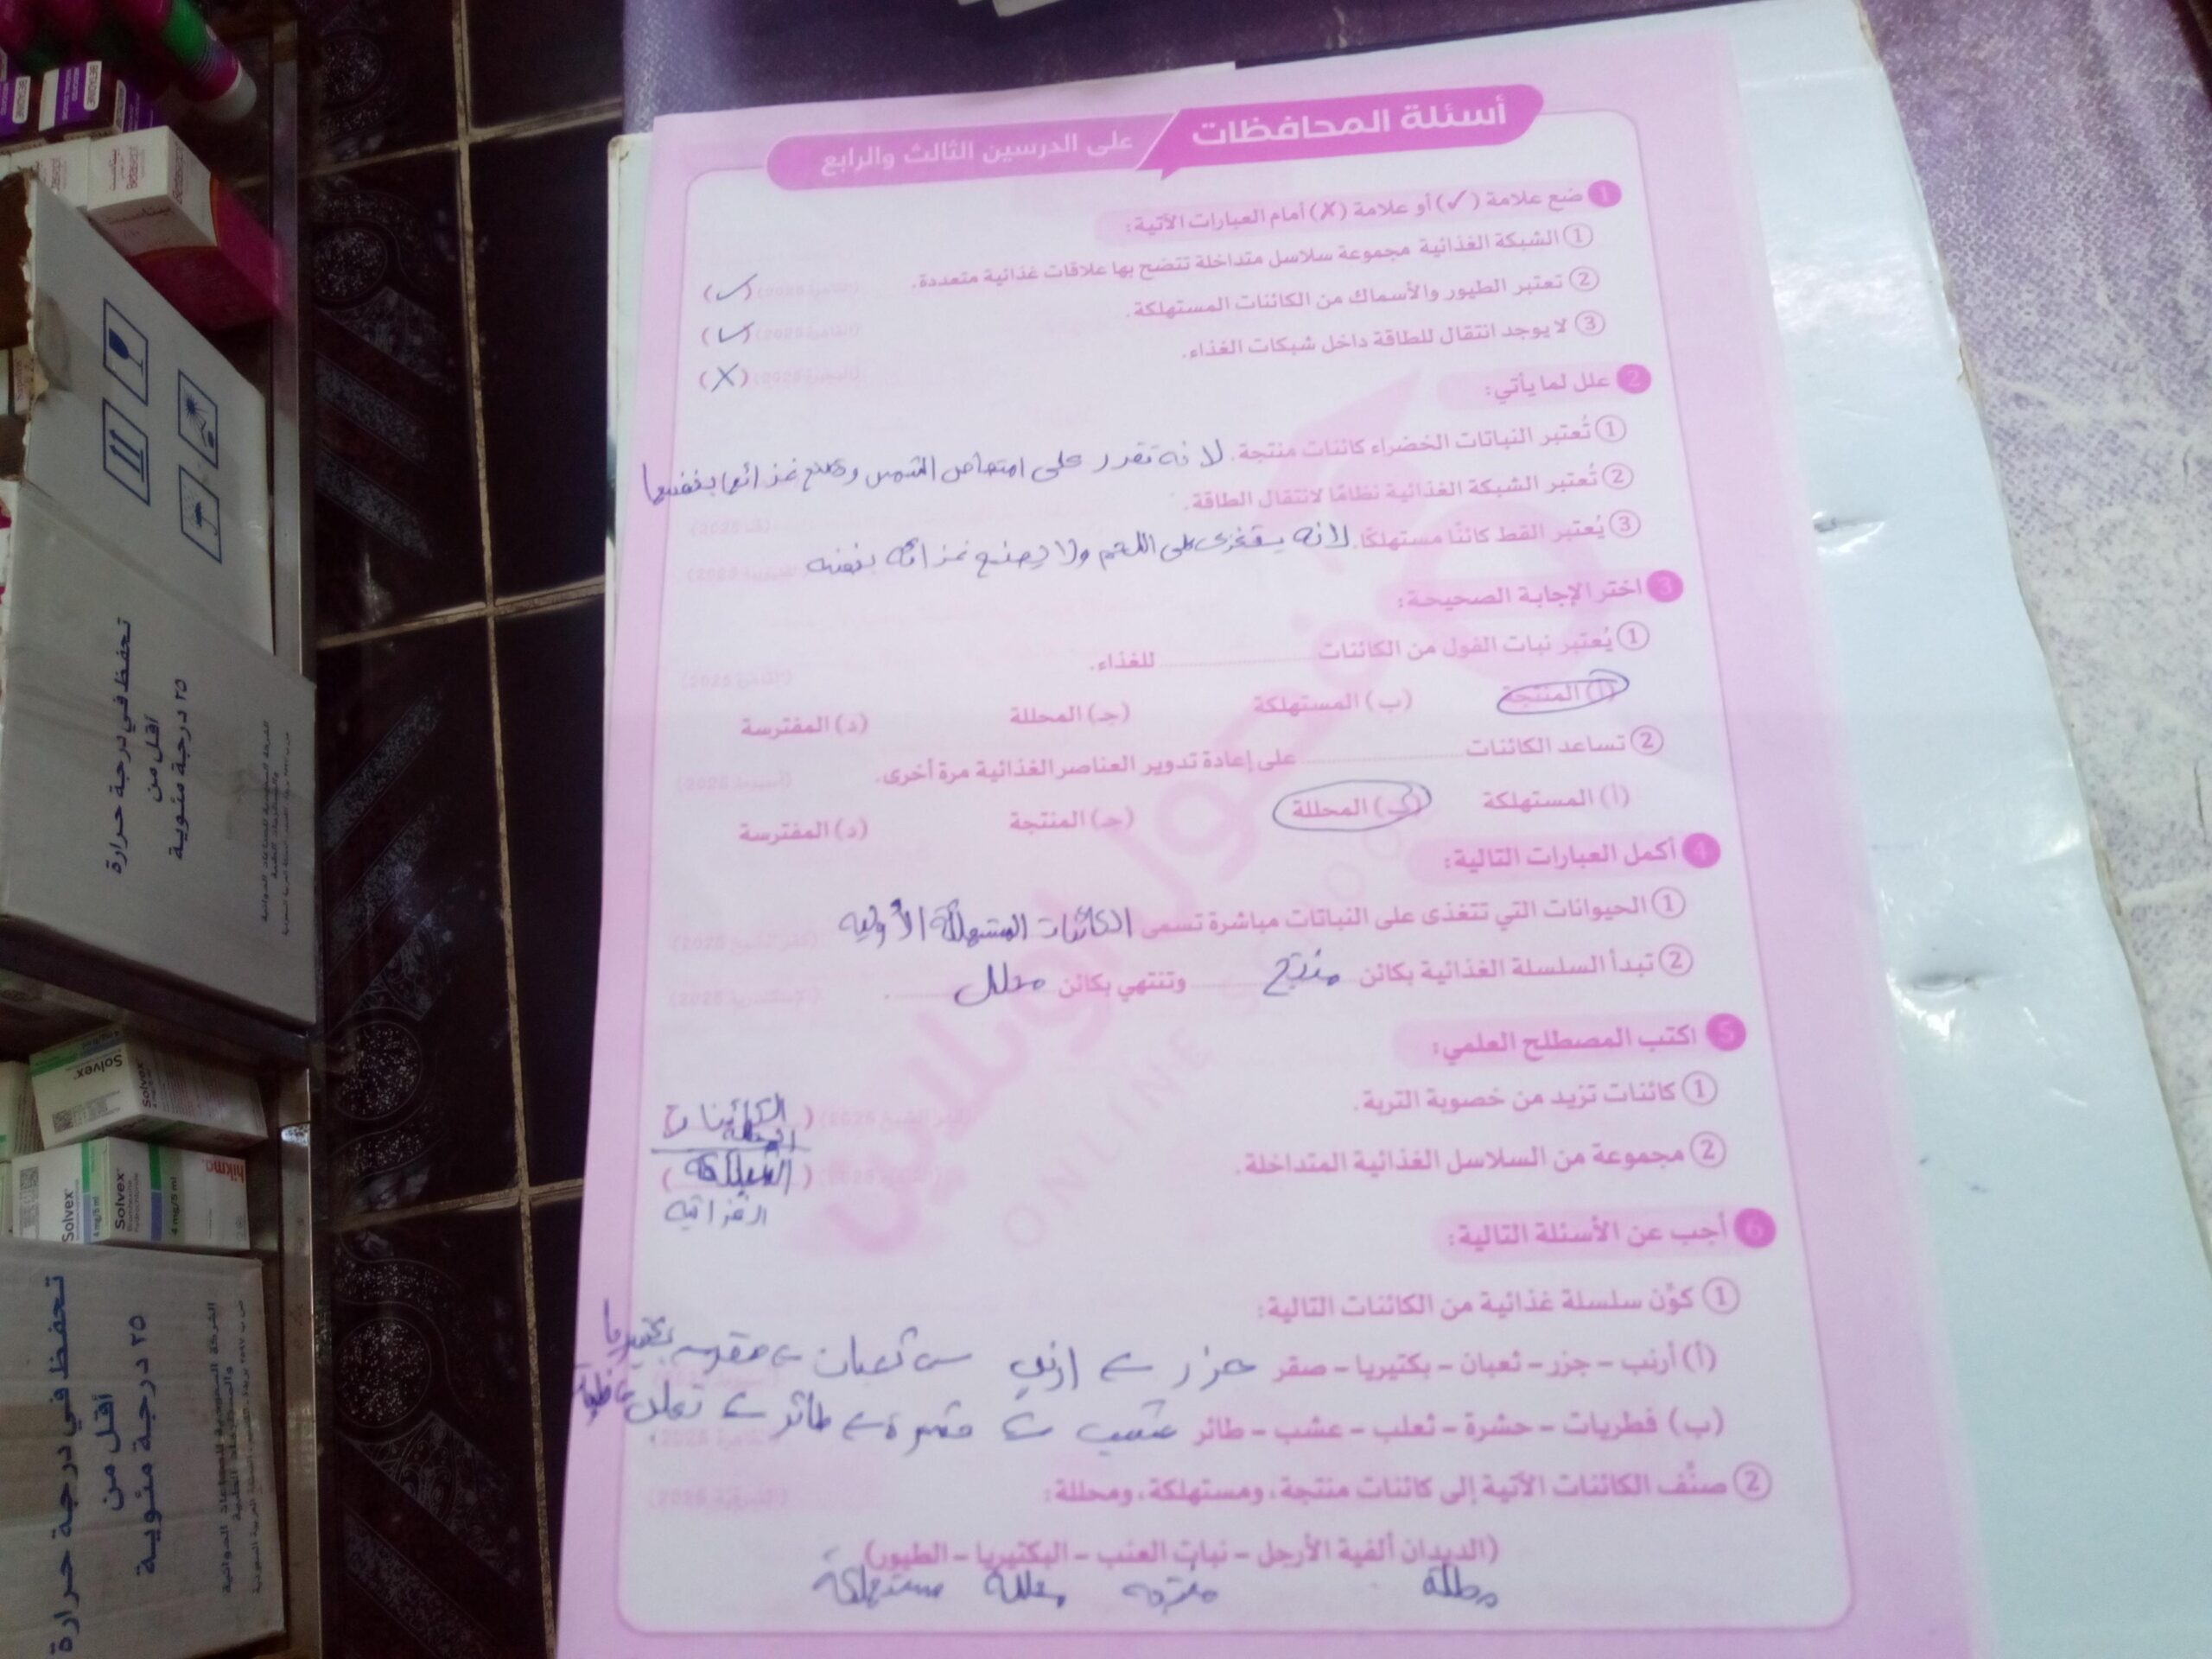 أسئلة المحافظات على الدرسين الثالث والرابع
1 ضع علامة (✓) أو علامة (✗) أمام العبارات الآتية:
① الشبكة الغذائية مجموعة سلاسل متداخلة تتضح بها علاقات غذائية متعددة. (✓)
② تعتبر الطيور والأسماك من الكائنات المستهلكة. (✓)
③ لا يوجد انتقال للطاقة داخل شبكات الغذاء. (X)
2 علل لما يأتي:
① تُعتبر النباتات الخضراء كائنات منتجة. لانه تقدر على امتصاص الشمس وتصنع غذائها بنفسها
② تُعتبر الشبكة الغذائية نظامًا لانتقال الطاقة.
③ يُعتبر القط كائنًا مستهلكًا. لانه يتغذى على اللحم ولا يصنع غذائه بنفسه
3 اختر الإجابة الصحيحة:
① يُعتبر نبات الفول من الكائنات ............ للغذاء.
(أ) المنتجة (ب) المستهلكة (جـ) المحللة (د) المفترسة
② تساعد الكائنات ............ على إعادة تدوير العناصر الغذائية مرة أخرى.
(أ) المستهلكة (ب) المحللة (جـ) المنتجة (د) المفترسة
4 أكمل العبارات التالية:
① الحيوانات التي تتغذى على النباتات مباشرة تسمى الكائنات المستهلكة الأوليه
② تبدأ السلسلة الغذائية بكائن منتج وتنتهي بكائن محلل
5 اكتب المصطلح العلمي:
① كائنات تزيد من خصوبة التربة. (الكائنات المحللة)
② مجموعة من السلاسل الغذائية المتداخلة. (الشبكة الغذائيه)
6 أجب عن الأسئلة التالية:
① كوّن سلسلة غذائية من الكائنات التالية:
(أ) أرنب – جزر – ثعبان – بكتيريا – صقر جزر ← ارنب ← ثعبان ← صقر ← بكتيريا
(ب) فطريات – حشرة – ثعلب – عشب – طائر عشب ← حشرة ← طائر ← ثعلب
② صنّف الكائنات الآتية إلى كائنات منتجة، ومستهلكة، ومحللة:
(الديدان ألفية الأرجل – نبات العنب – البكتيريا – الطيور)
محللة منتجه محللة مستهلكة
ONLINE SCHOOL
تحفظ في درجة حرارة
أقل من
٢٥ درجة مئوية
Solvex
Solvex
Solvex
4 mg/5 ml
hikma
تحفظ في درجة حرارة
أقل من
٢٥ درجة مئوية